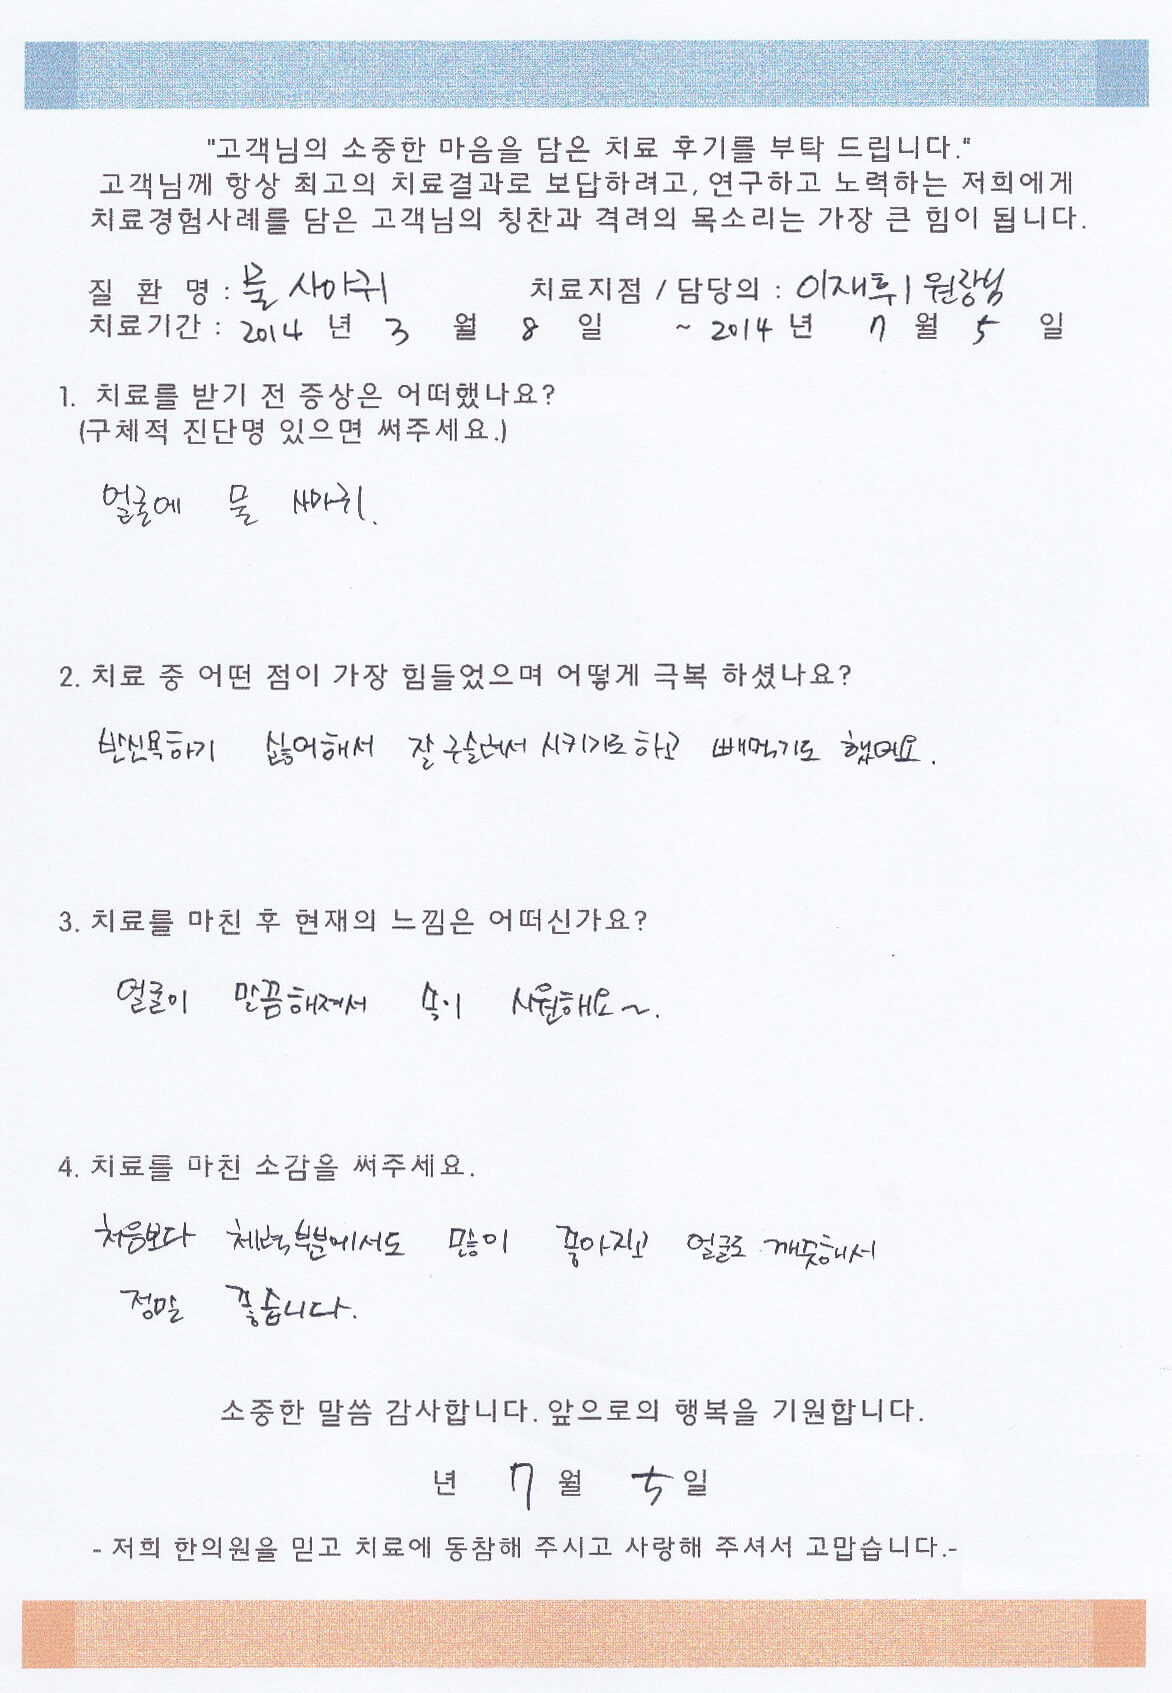 "고객님의 소중한 마음을 담은 치료 후기를 부탁 드립니다."
고객님께 항상 최고의 치료결과로 보답하려고, 연구하고 노력하는 저희에게
치료경험사례를 담은 고객님의 칭찬과 격려의 목소리는 가장 큰 힘이 됩니다.
질 환 명 : 물 사마귀 치료지점 / 담당의 : 원장님
치료기간 : 2014 년 3 월 8 일 ~ 2014 년 7 월 5 일
1. 치료를 받기 전 증상은 어떠했나요?
(구체적 진단명 있으면 써주세요.)
얼굴에 물 사마귀.
2. 치료 중 어떤 점이 가장 힘들었으며 어떻게 극복 하셨나요?
반신욕하기 싫어해서 잘 구슬려서 시키기도 하고 빼먹기도 했어요.
3. 치료를 마친 후 현재의 느낌은 어떠신가요?
얼굴이 말끔해져서 속이 시원해요~.
4. 치료를 마친 소감을 써주세요.
처음보다 체력부분에서도 많이 좋아지고 얼굴도 깨끗해서
정말 좋습니다.
소중한 말씀 감사합니다. 앞으로의 행복을 기원합니다.
년 7 월 5 일
- 저희 한의원을 믿고 치료에 동참해 주시고 사랑해 주셔서 고맙습니다.-